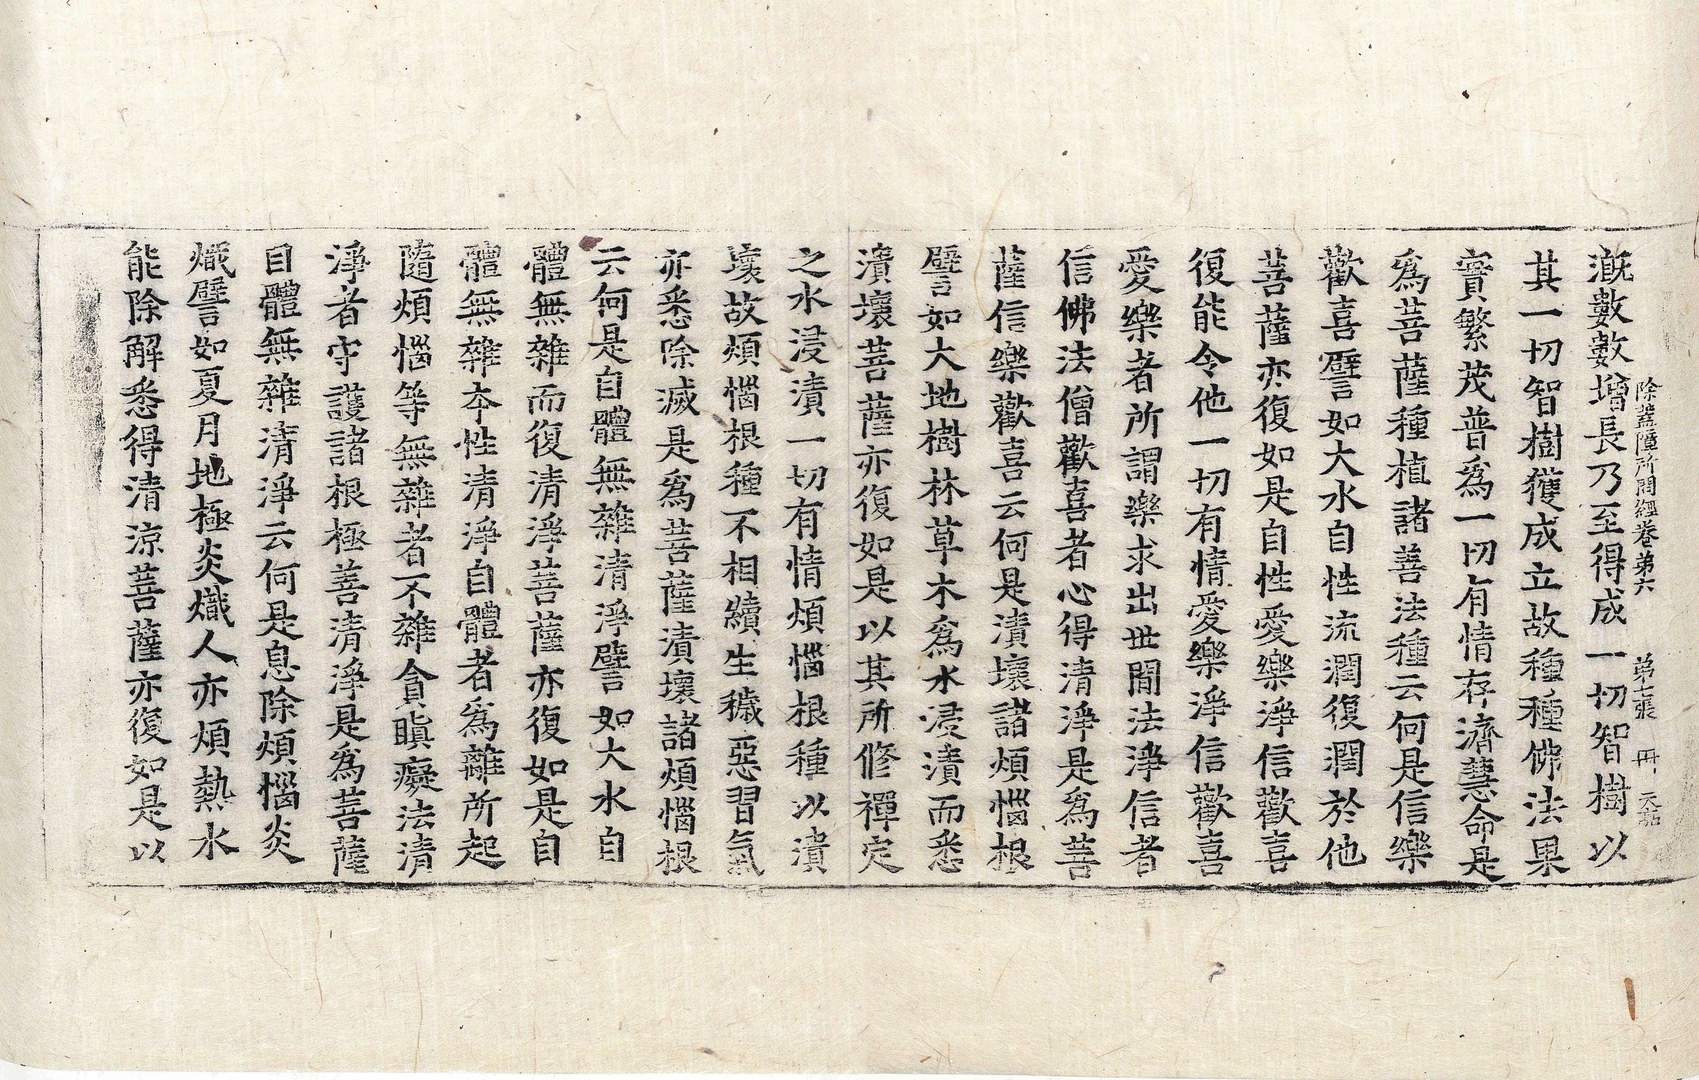 漑數數增長乃至得成一切智樹以
除蓋障所問經卷第六 第七張 冊
其一切智樹獲成立故種種佛法果
實繁茂普爲一切有情存濟慧命是
爲菩薩種植諸善法種云何是信樂
歡喜譬如大水自性流潤復潤於他
菩薩亦復如是自性愛樂淨信歡喜
復能令他一切有情愛樂淨信歡喜
愛樂者所謂樂求出世間法淨信者
信佛法僧歡喜者心得清淨是爲菩
薩信樂歡喜云何是漬壞諸煩惱根
譬如大地樹林草木爲水浸漬而悉
潰壞菩薩亦復如是以其所修禪定
之水浸漬一切有情煩惱根種以漬
壞故煩惱根種不相續生穢惡習氣
亦悉除滅是爲菩薩漬壞諸煩惱根
云何是自體無雜清淨譬如大水自
體無雜而復清淨菩薩亦復如是自
體無雜本性清淨自體者爲離所起
隨煩惱等無雜者不雜貪瞋癡法清
淨者守護諸根極善清淨是爲菩薩
自體無雜清淨云何是息除煩惱炎
熾譬如夏月地極炎熾人亦煩熱水
能除解悉得清涼菩薩亦復如是以